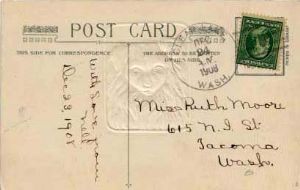 POST CARD
THIS SIDE FOR CORRESPONDENCE
THE ADDRESS TO BE WRITTEN ON THIS SIDE
DEC
24
1908
WASH.
With love from
Nell
Dec 23, 1908
Miss Ruth Moore
615 N. I St
Tacoma
Wash.